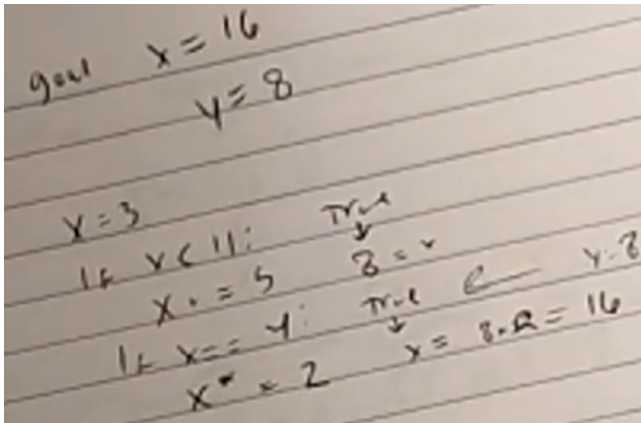 goal x = 16
y = 8
x = 3
If x < 11: True
x + = 5 8 = x
If x == y: True y = 8
x* = 2 x = 8 * 2 = 16